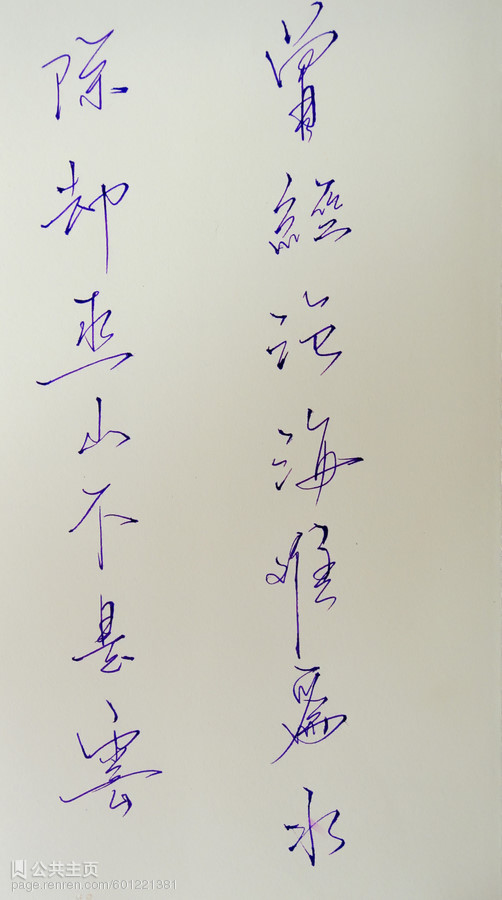 曾經沧海难為水
除却巫山不是雲
公共主页
page.renren.com/601221381